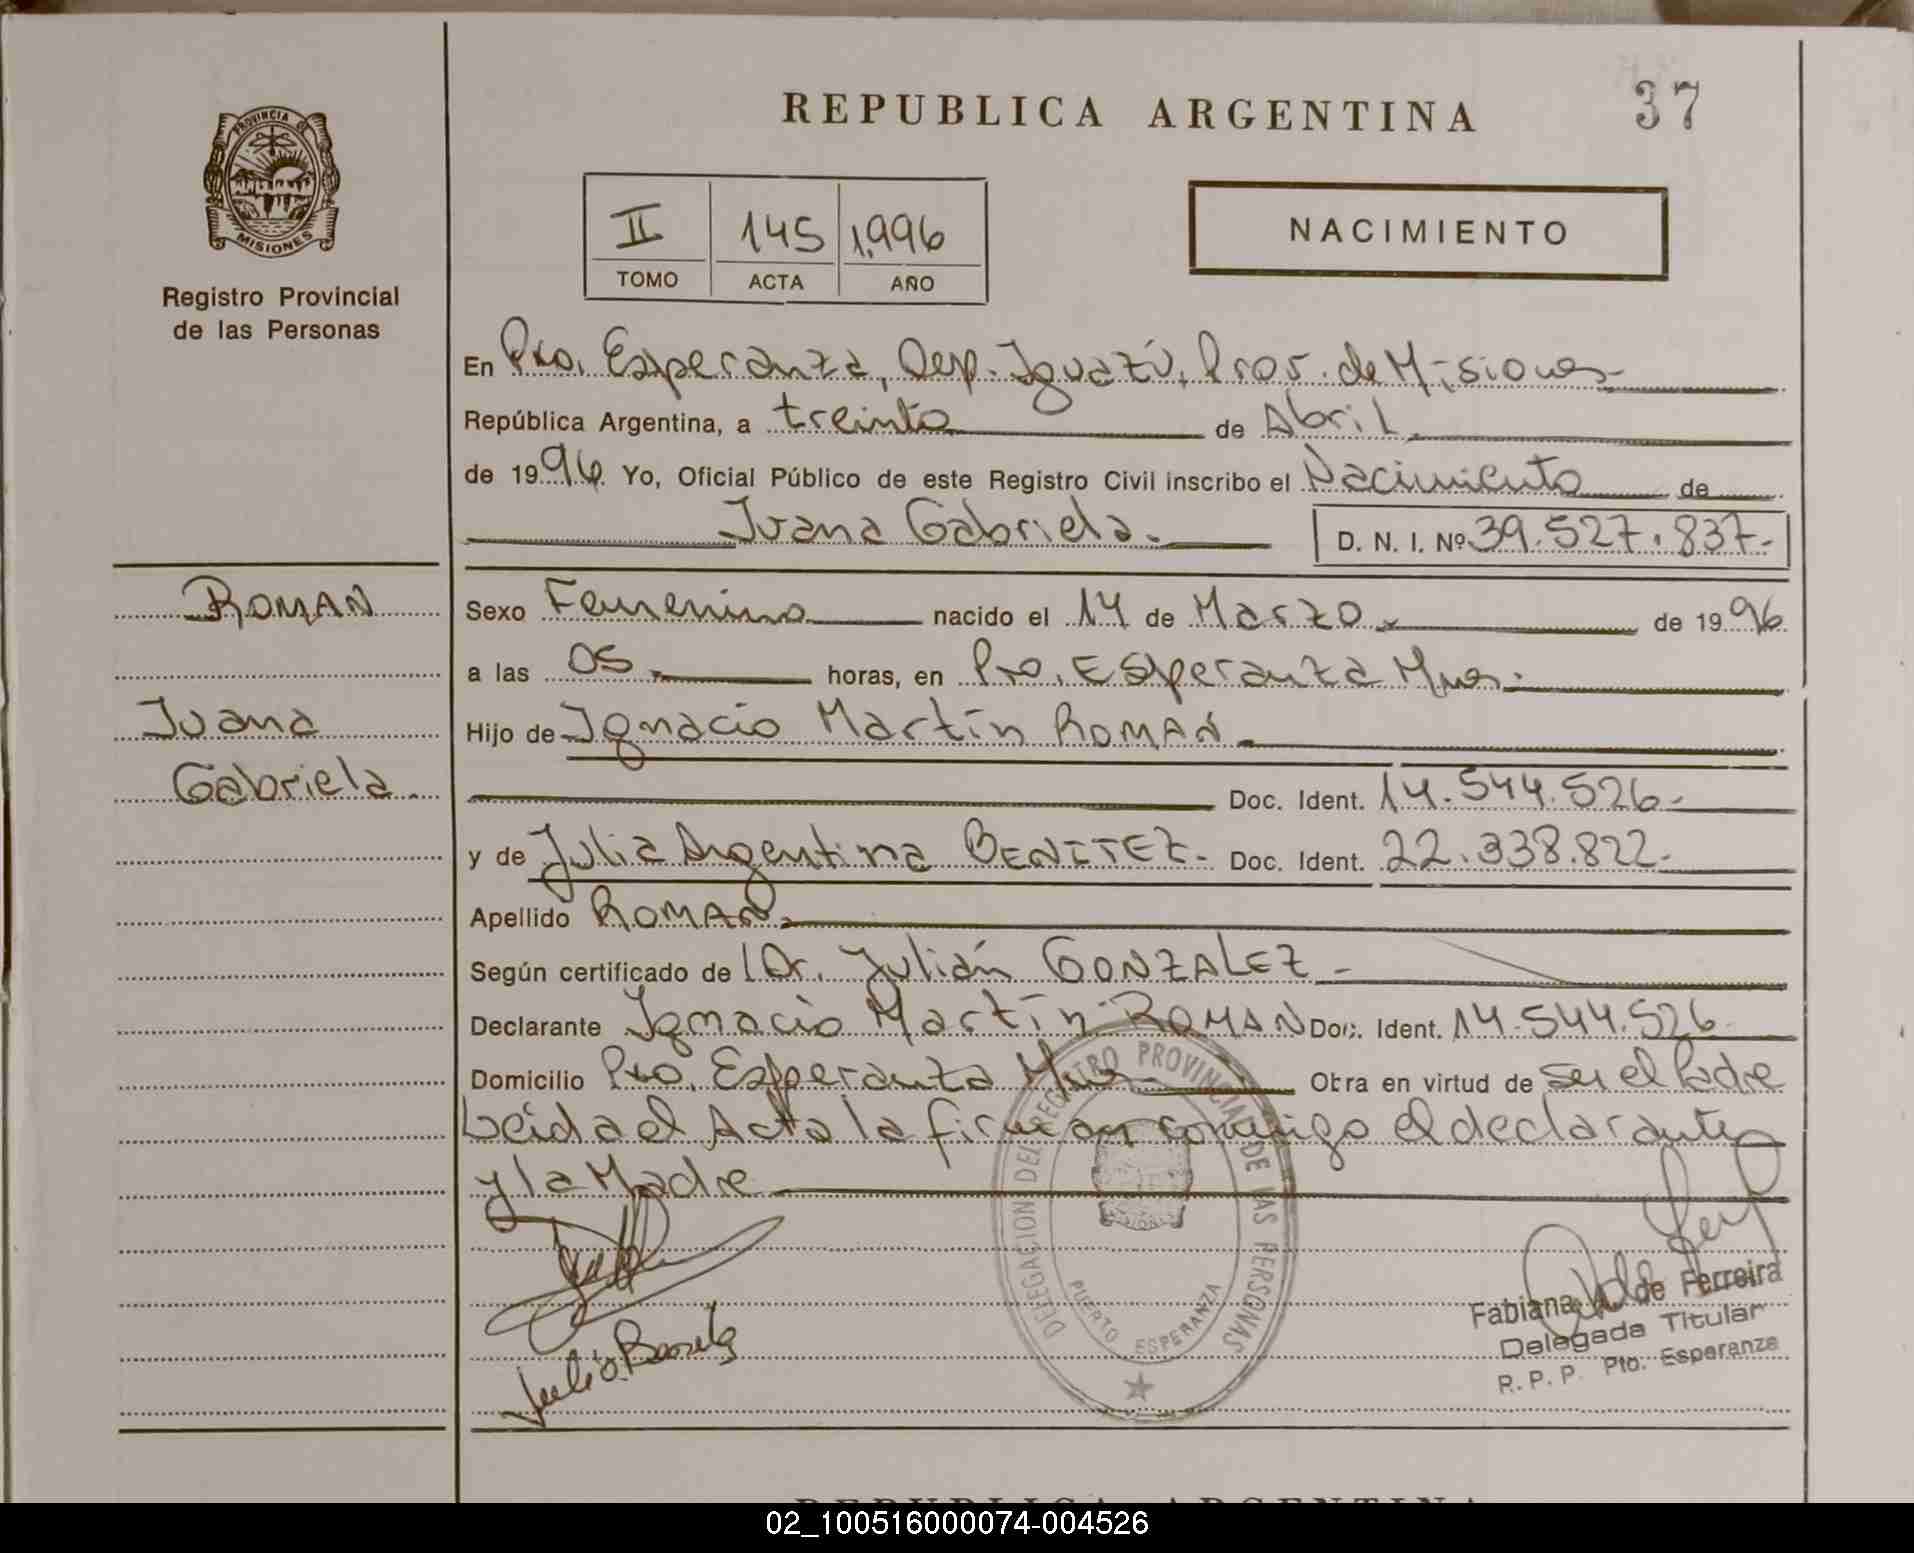 REPUBLICA ARGENTINA
37
PROVINCIA DE
MISIONES
Registro Provincial
de las Personas
II 145 1,996
TOMO ACTA AÑO
NACIMIENTO
En Pto. Esperanza, Dep. Iguazú, Prov. de Misiones
República Argentina, a treinta de Abril
de 1996. Yo, Oficial Público de este Registro Civil inscribo el Nacimiento de
Juana Gabriela.- D. N. I. Nº 39.527.837.-
ROMAN
Juana
Gabriela.
Sexo Femenino nacido el 14 de Marzo de 1996
a las 05 horas, en Pto. Esperanza Mnes.
Hijo de Ignacio Martín ROMAN
Doc. Ident. 14.544.526.-
y de Julia Argentina BENITEZ.- Doc. Ident. 22.338.822.-
Apellido ROMAN.
Según certificado de Dr. Julián GONZALEZ -
Declarante Ignacio Martín ROMAN Doc. Ident. 14.544.526
Domicilio Pto. Esperanza Mnes Obra en virtud de ser el Padre
Leida el Acta la firman conmigo el declarante
y la Madre
DELEGACION DEL REGISTRO PROVINCIAL DE LAS PERSONAS
MISIONES
PUERTO ESPERANZA
Fabiana de Ferreira
Delegada Titular
R. P. P. Pto. Esperanza
REPUBLICA ARGENTINA
02_100516000074-004526